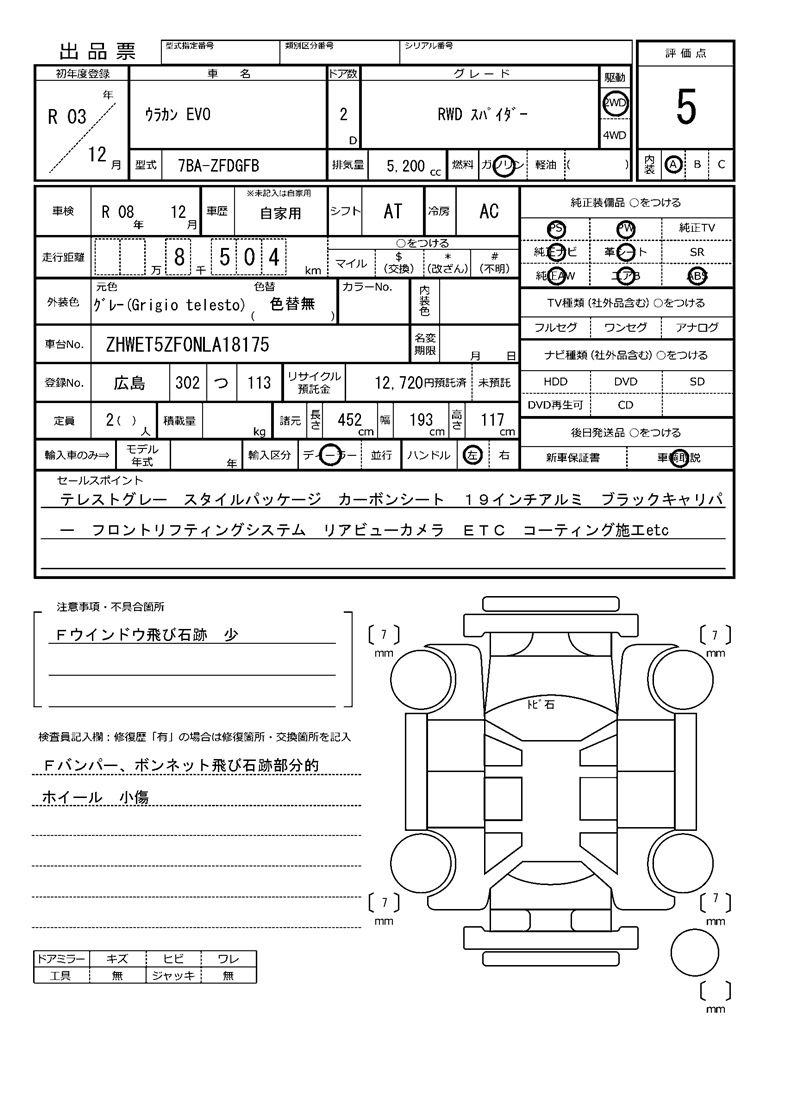 出品票
型式指定番号 類別区分番号 シリアル番号
評価点
初年度登録 車名 ドア数 グレード 駆動
R 03 年 ウラカン EVO 2 D RWD スパイダー 2WD 5
12 月 4WD
型式 7BA-ZFDGFB 排気量 5,200 cc 燃料 ガソリン 軽油 ( ) 内装 A B C
※未記入は自家用
車検 R 08 年 12 月 車歴 自家用 シフト AT 冷房 AC
純正装備品 ○をつける
PS PW 純正TV
純正ナビ 革シート SR
純正AW エアB ABS
走行距離 万 8 千 504 km
○をつける
マイル $(交換) *(改ざん) #(不明)
外装色 元色 色替 カラーNo. 内装色
グレー(Grigio telesto) ( 色替無 )
TV種類(社外品含む)○をつける
フルセグ ワンセグ アナログ
車台No. ZHWET5ZF0NLA18175 名変期限 月 日
ナビ種類(社外品含む)○をつける
HDD DVD SD
DVD再生可 CD
登録No. 広島 302 つ 113 リサイクル預託金 12,720円預託済 未預託
定員 2( )人 積載量 kg 諸元 長さ 452 cm 幅 193 cm 高さ 117 cm
後日発送品 ○をつける
新車保証書 車輌取説
輸入車のみ⇒ モデル年式 年 輸入区分 ディーラー 並行 ハンドル 左 右
セールスポイント
テレストグレー スタイルパッケージ カーボンシート 19インチアルミ ブラックキャリパ
ー フロントリフティングシステム リアビューカメラ ETC コーティング施工etc
注意事項・不具合箇所
Fウインドウ飛び石跡 少
検査員記入欄:修復歴「有」の場合は修復箇所・交換箇所を記入
Fバンパー、ボンネット飛び石跡部分的
ホイール 小傷
ドアミラー キズ ヒビ ワレ
工具 無 ジャッキ 無
[ 7 ] mm
[ 7 ] mm
トビ石
[ 7 ] mm
[ 7 ] mm
[ ] mm